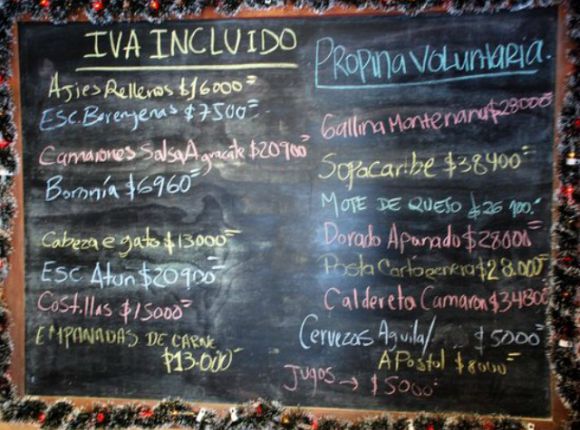 IVA INCLUIDO
Ajies Rellenos $16000=
Esc. Berenjenas $7500=
Camarones Salsa Aguacate $20900=
Boronía $6960=
Cabeza e gato $13000=
Esc Atun $20900=
Costillas $15000=
EMPANADAS DE CARNE
$13.000=
Propina Voluntaria.
Gallina Monteriana $28000=
Sopa caribe $38400=
MOTE DE QUESO $26 100=
Dorado Apanado $28000=
Posta Cartagenera $28.000=
Caldereta Camaron $34800=
Cervezas Aguila/ .. $5000=
APostol $8000=
Jugos → $5000=